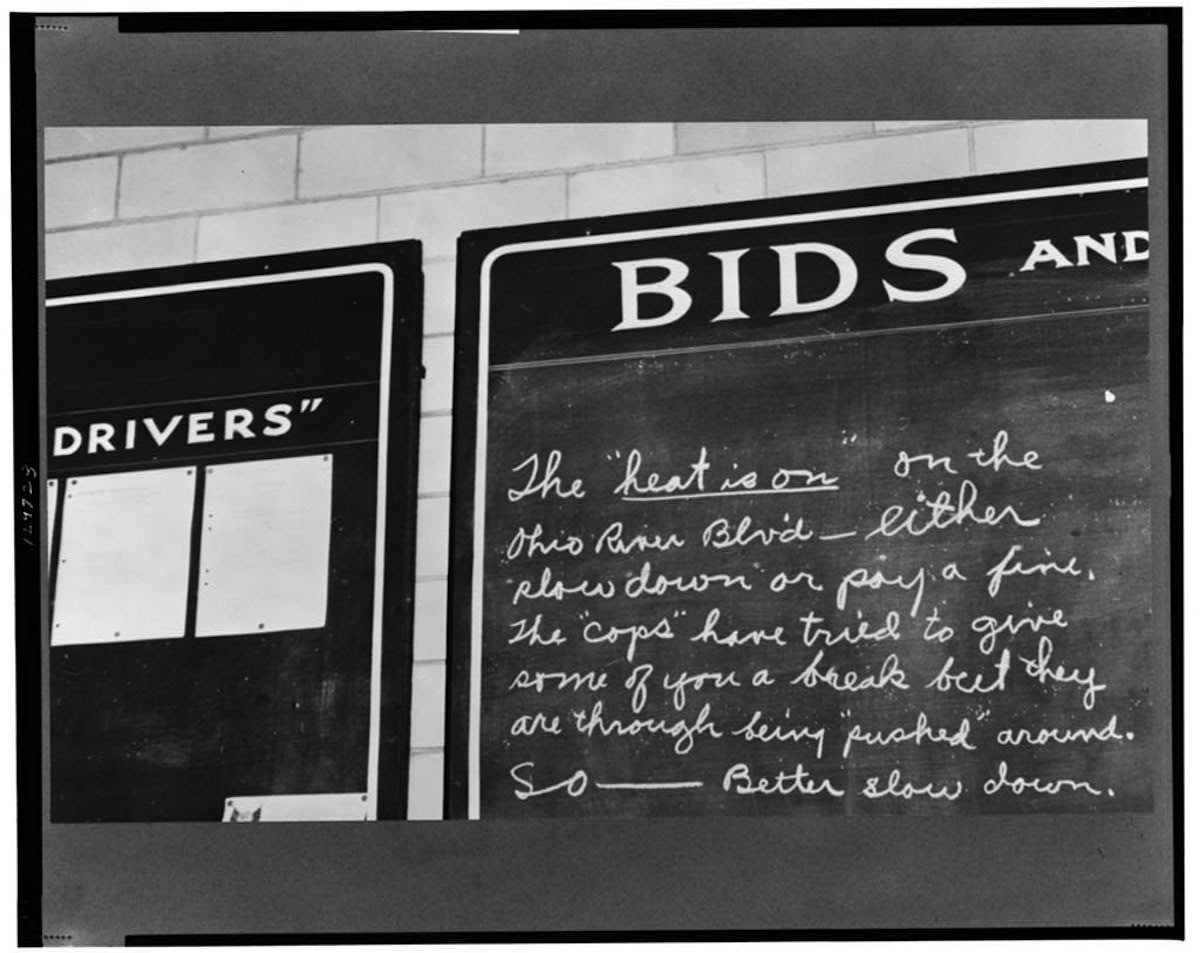 BIDS AND
DRIVERS"
The "heat is on" on the
Ohio River Blv'd — either
slow down or pay a fine.
The "cops" have tried to give
some of you a break but they
are through being "pushed" around.
So —— Better slow down.